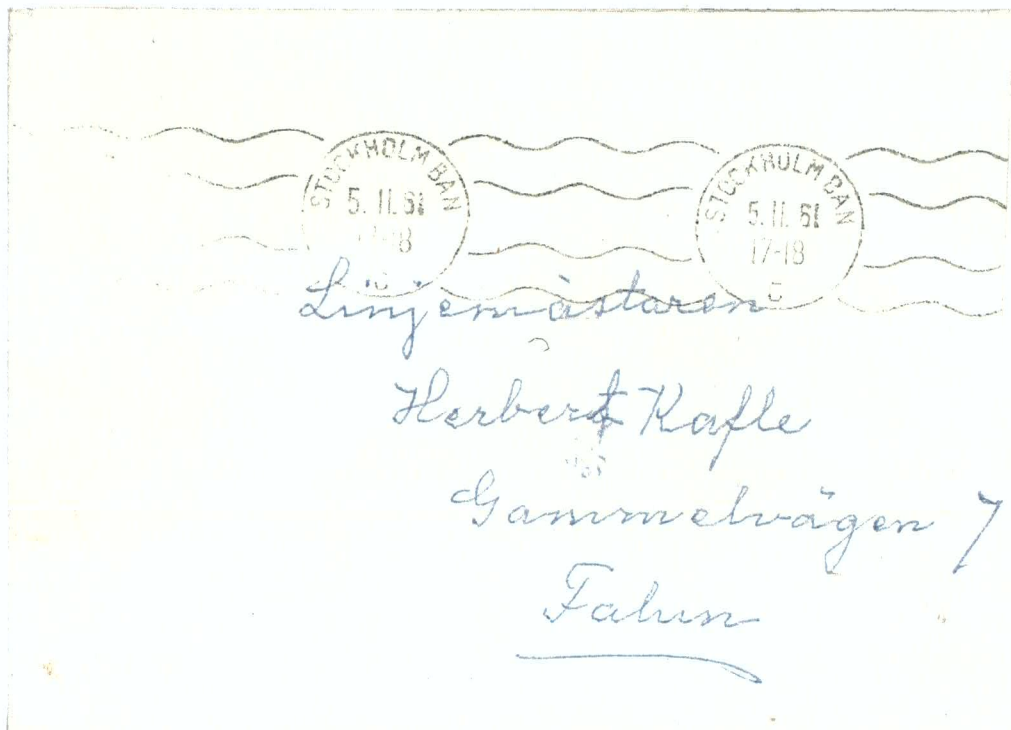 STOCKHOLM BAN
5. 11. 61
STOCKHOLM BAN
5. 11. 61
17-18
Linjemästaren
Herbert Kafle
Gammelvägen 7
Falun